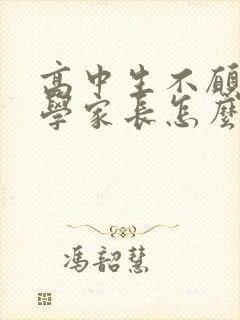 高中生不願
學家長怎麼
馮韶慧